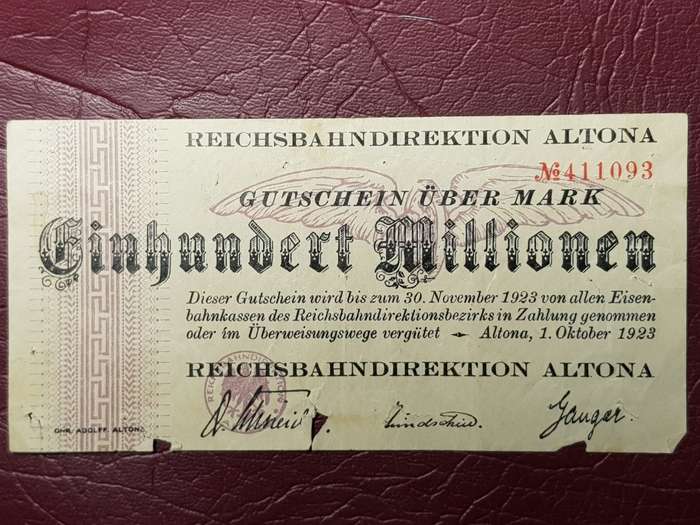 REICHSBAHNDIREKTION ALTONA
№411093
GUTSCHEIN ÜBER MARK
Einhundert Millionen
Dieser Gutschein wird bis zum 30. November 1923 von allen Eisen-
bahnkassen des Reichsbahndirektionsbezirks in Zahlung genommen
oder im Überweisungswege vergütet - Altona, 1. Oktober 1923
REICHSBAHNDIREKTION ALTONA
REICHSBAHNDIREKTION
CHR. ADOLFF, ALTONA